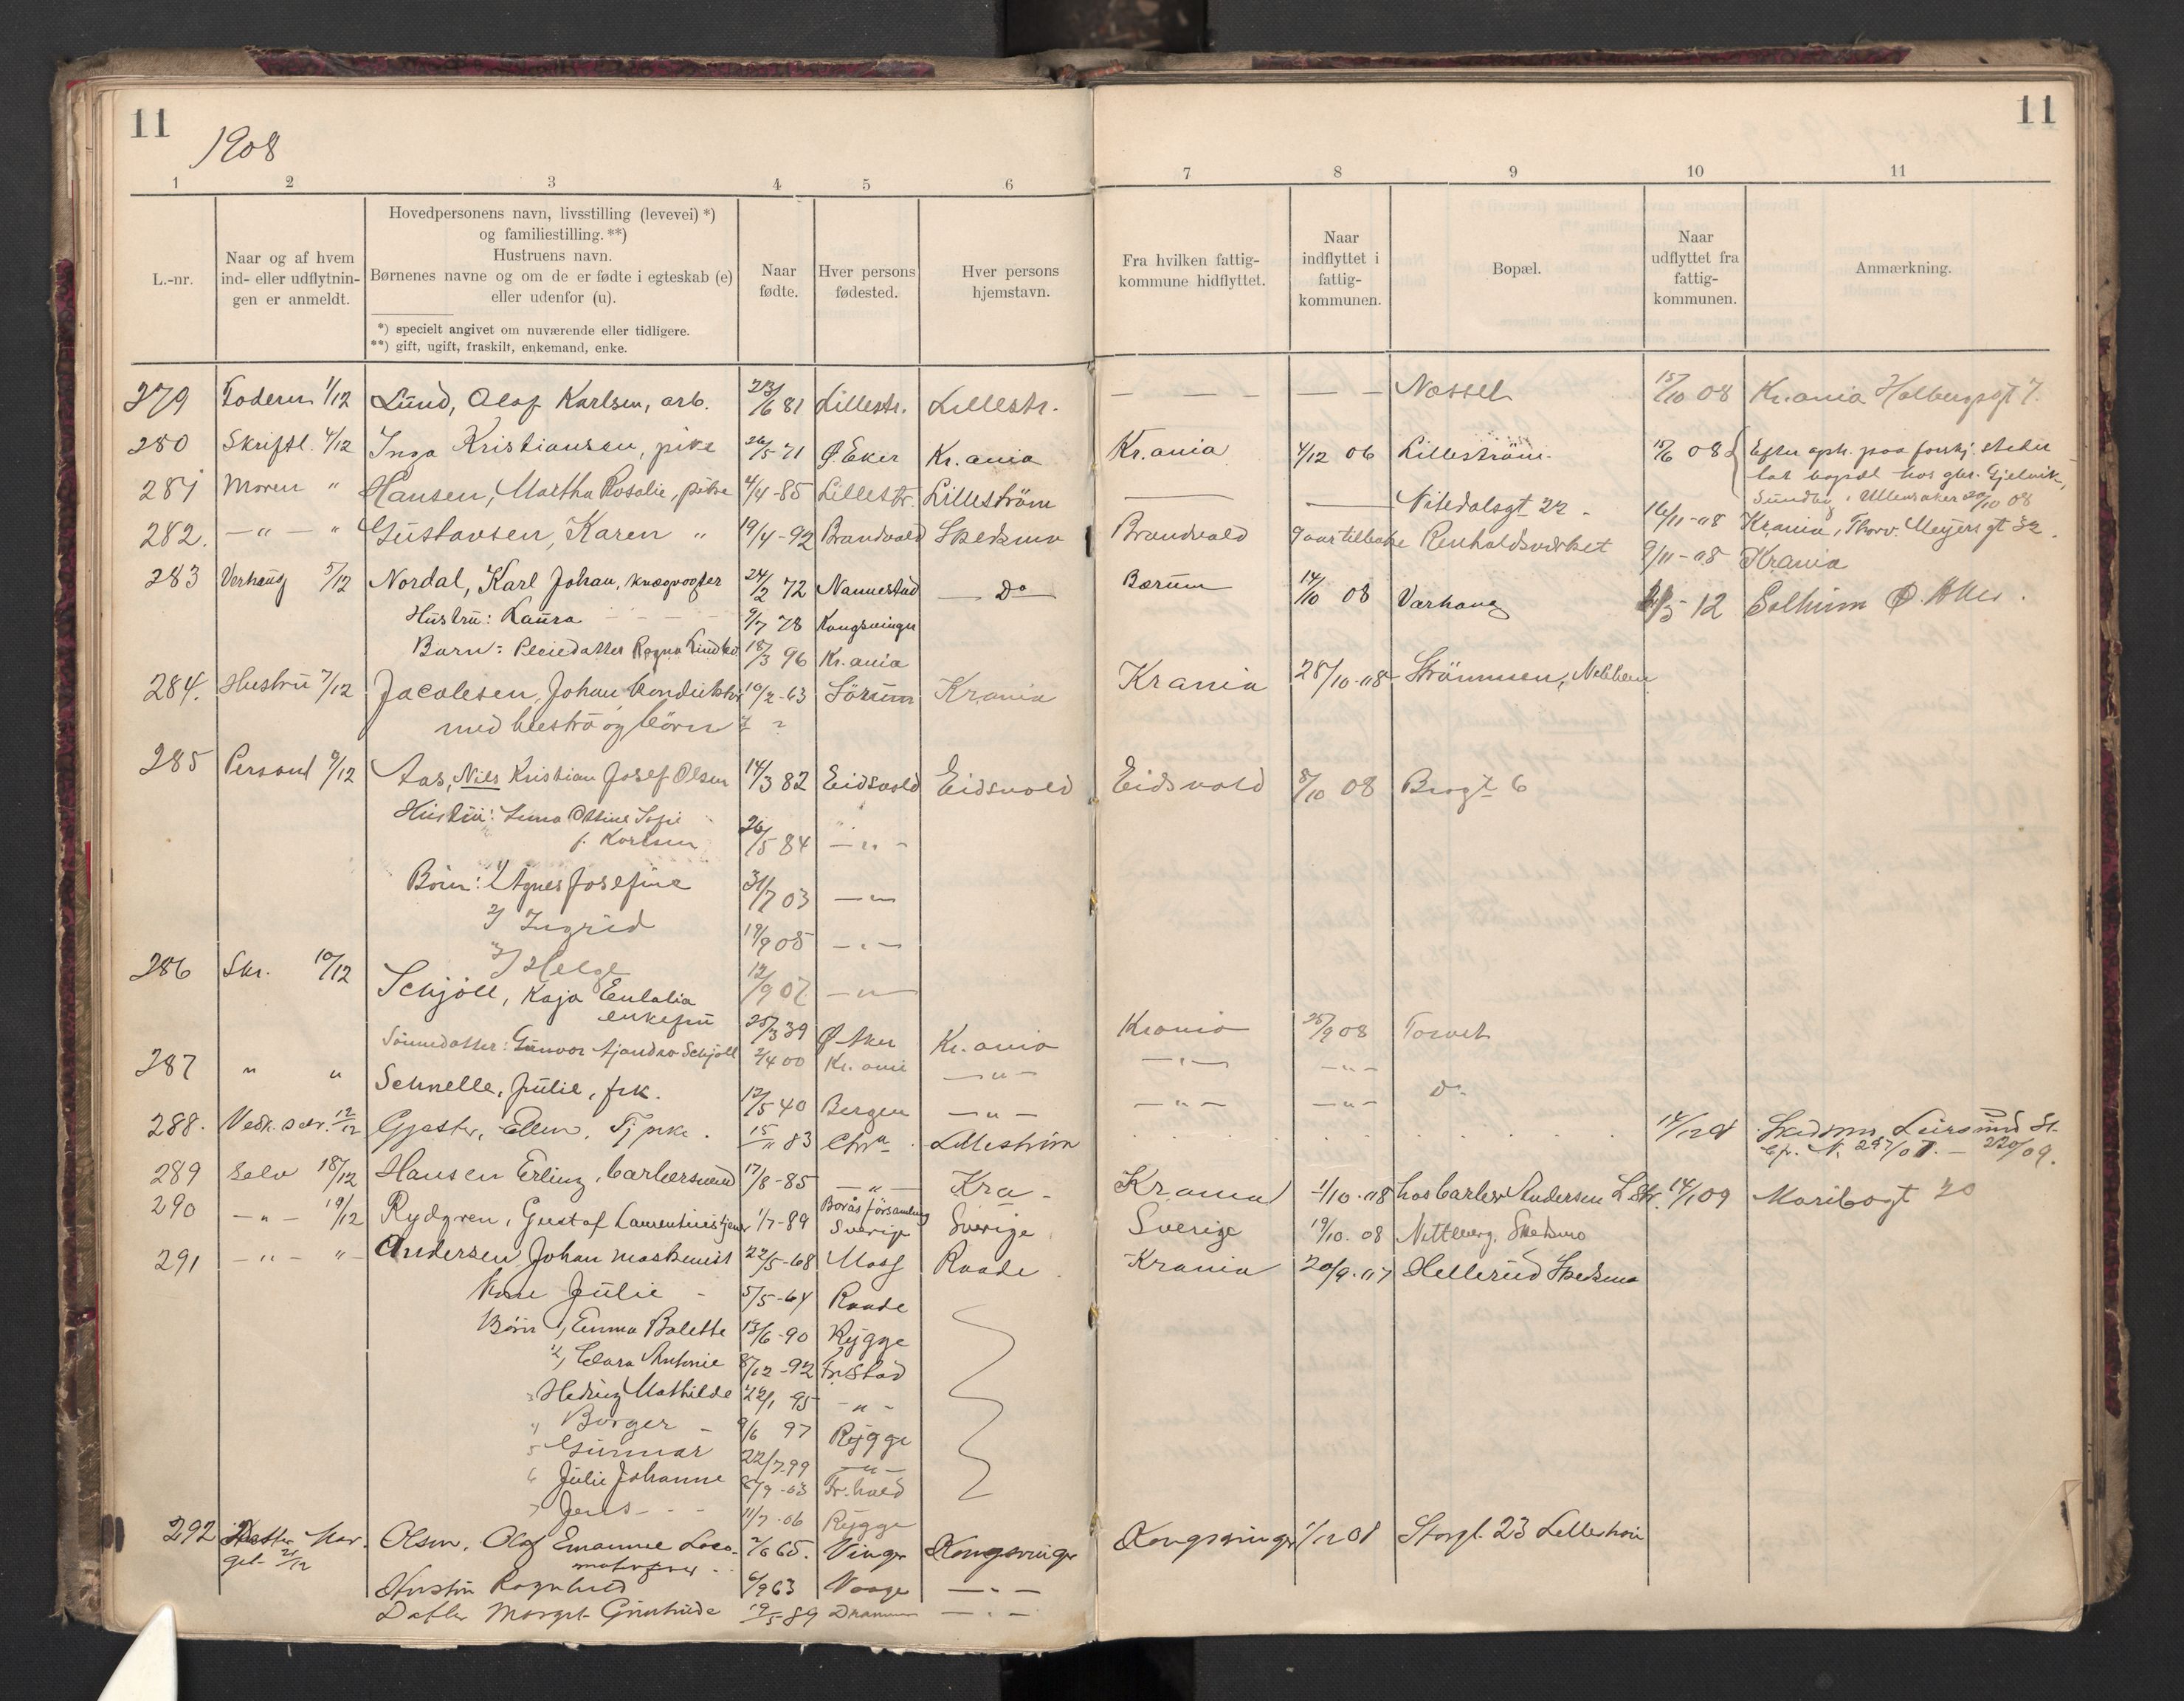 11
11
1908
1 2 3 4 5 6 7 8 9 10 11
L.-nr.
Naar og af hvem
ind- eller udflytnin-
gen er anmeldt.
Hovedpersonens navn, livsstilling (levevei) *)
og familiestilling. **)
Hustruens navn.
Børnenes navne og om de er fødte i egteskab (e)
eller udenfor (u).
*) specielt angivet om nuværende eller tidligere.
**) gift, ugift, fraskilt, enkemand, enke.
Naar
fødte.
Hver persons
fødested.
Hver persons
hjemstavn.
Fra hvilken fattig-
kommune hidflyttet.
Naar
indflyttet i
fattig-
kommunen.
Bopæl.
Naar
udflyttet fra
fattig-
kommunen.
Anmærkning.
279 1/12 Lund, Olaf Karlsen, arb. 23/6 81 Lillestr. Lillestr. — — — — — 15/10 08 Kr.ania Holbergsgt 7.
280 Skriftl. 4/12 Inga Kristiansen, pike 26/5 71 Ø. Eker Kr.ania Kr.ania 4/12 06 Lilleström 15/6 08
281 Moren " Hansen, Martha Rosalie, pike 4/4-85 Lillestr. Lilleström — — Nitedalsgt 22 - 16/11-08 Krania, Thorv. Meyersgt 32.
Sundby i Ullensaker 20/10 08
282. —"— " Gustavsen, Karen " 19/4-92 Brandvold Skedsmo Brandvold 9 aar tilbake Renholdsverket 9/11-08 Krania
283 5/12 Nordal, Karl Johan, 24/2 72 Nannestad — Do — Bærum 14/10 08 Varhaug 12 Solheim Ø. Aker.
Hustru: Laura 9/7 78 Kongsvinger
Barn: Pleiedatter Ragna 18/3 96 Kr.ania
284. Hustru 7/12 Jacobsen, Johan Konduktør 10/2-63 Sörum Krania Krania 28/10-08 Strömmen,
med hustru og börn
285 Personl 9/12 Aas, Nils Kristian Josef Olsen 14/3 82 Eidsvold Eidsvold Eidsvold 8/10 08 Brogt 6
Hustru: Othine Sofie
f. Karlsen 26/5 84 —"—
Börn: 1/ Agnes Josefine 31/7 03 —"—
2/ Ingrid 19/9 05 —"—
3/ Helge 12/9 07 —"—
286 Skr. 10/12 Schjöll, Kaja Eulalia
enkefru 25/3 39 Ø. Aker Kr.ania Krania 25/9 08 Torvet
Sönnedatter: Gunvor Schjöll 2/4 00 Kr.ania —"— —"— —"—
287 " " Schnelle, Julie, frk. 12/5 40 Bergen —"— —"— —"— Do
288. 12/12 Gjester, Ellen, Tj. pike. 15/11 83 Chra. Lilleström Skedsmo, Leirsund St.
289 Selv 18/12 Hansen Erling, barbersvend 17/8-85 —"— Kra- Krania 1/10-08 hos barber Andersen L.Str. 14/1 09 Maribogt 20
290 —"— 19/12 Rydgren, Gustaf Laurentius tjener 1/7-89 Borås församling
Sverige Sverige Sverige 19/10. 08 Nitteberg, Skedsmo
291 —"— " Andersen, Johan maskinist 22/5-68 Moss Raade Krania 20/9-07 Hellerud Skedsmo
Kone Julie - 5/5-64 Raade
Börn 1, Emma Bolette 13/6-90 Rygge
2, Clara Antonie 8/12-92 Fr.stad
3 Hedvig Mathilde 22/1 95 -"-
4 Borger - 9/6 97 Rygge
5 Gunnar 22/7-99 —"—
6 Julie Johanne 8/9-03 Fr.hald
7 Jens - - 11/7-06 Rygge
292 21/12 Olsen, Olaf Emanuel Loco-
motivförer 2/6 65. Vinger Kongsvinger Kongsvinger 1/12 08 Storgt. 23 Lilleström
Hustru Ragnhild 6/9 63 Vaage —"—
Datter Margit 19/5 89 Drammen —"—